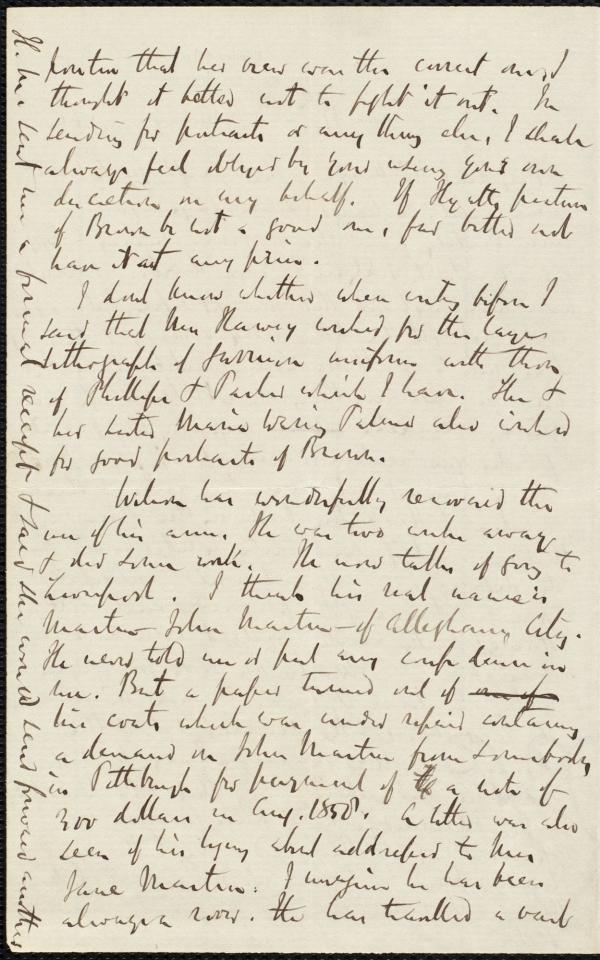 position that her view was the correct one, I
thought it better not to fight it out. In
sending for portraits or any thing else, I shall
always feel obliged by your using your own
discretion on my behalf. If Hyatt's picture
of Brown be not a good one, far better not
have it at any price.
I dont know whether when writing before I
said that Mrs Harvey wished for the large
Lithograph of Garrison uniform with those
of Phillips & Parker which I have. She &
her sister Maria Waring Palmer also wished
for good portraits of Brown.
Wilson has wonderfully recovered the
use of his arm. He was two weeks away
& did some work. He now talks of going to
Liverpool. I think his real name is
Martin - John Martin - of Alleghany City.
He never told me or put any confidence in
me. But a paper turned out of one of
his coats which was under repair containing
a demand on John Martin from somebody
in Pittsburgh for payment of a note of
300 dollars in Aug. 1858. A letter was also
seen of his lying about addressed to Mrs
Jane Martin. I imagine he has been
always a rover. He has travelled a vast
sent me a formal receipt & said she would send forward another